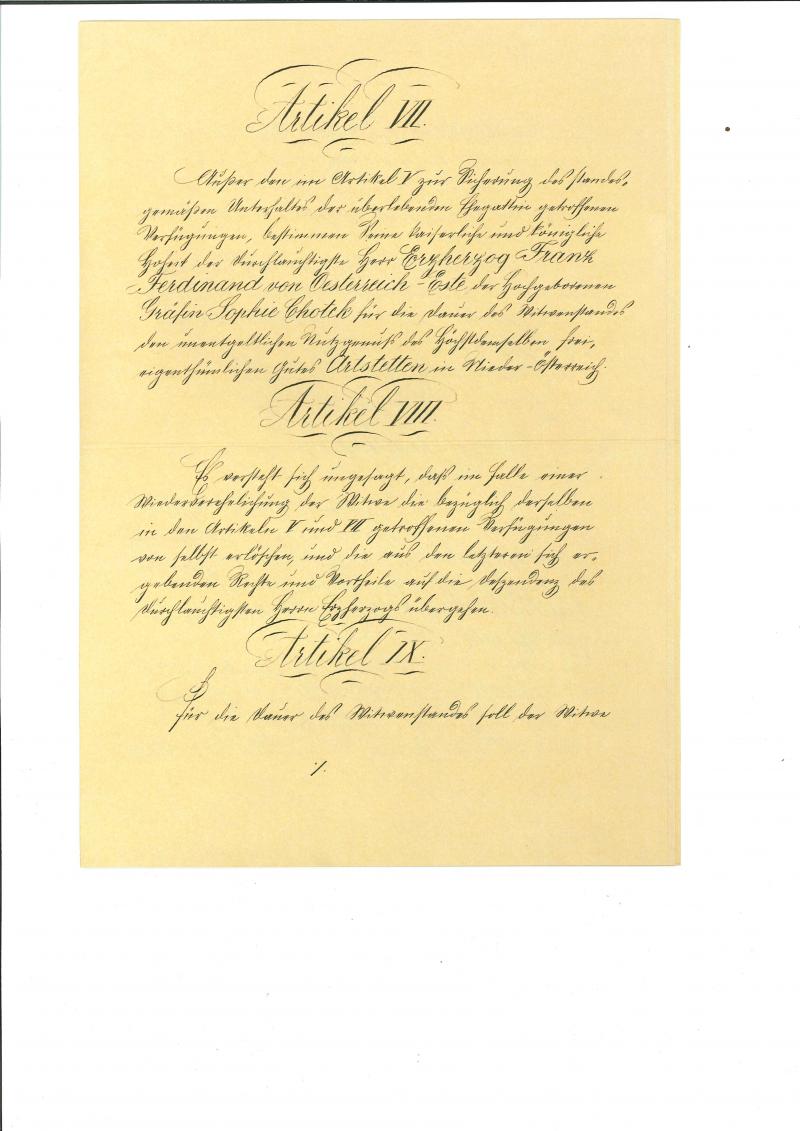 Artikel VII.
Außer den im Artikel V zur Sicherung des standes-
gemäßen Unterhaltes der überlebenden Ehegattin getroffenen
Verfügungen, bestimmen Seine kaiserliche und königliche
Hoheit der Durchlauchtigste Herr Erzherzog Franz
Ferdinand von Oesterreich-Este der Hochgeborenen
Gräfin Sophie Chotek für die Dauer des Witwenstandes
den unentgeltlichen Nutzgenuß des Höchstdemselben frei-
eigenthümlichen Gutes Artstetten in Nieder-Österreich.
Artikel VIII.
Es versteht sich ungesagt, daß im Falle einer
Wiederverehelichung der Witwe die bezüglich derselben
in den Artikeln V und VII getroffenen Verfügungen
von selbst erlöschen, und die aus den letzteren sich er-
gebenden Rechte und Vortheile auf die Deszendenz des
Durchlauchtigsten Herrn Erzherzogs übergehen.
Artikel IX.
Für die Dauer des Witwenstandes soll der Witwe
./.